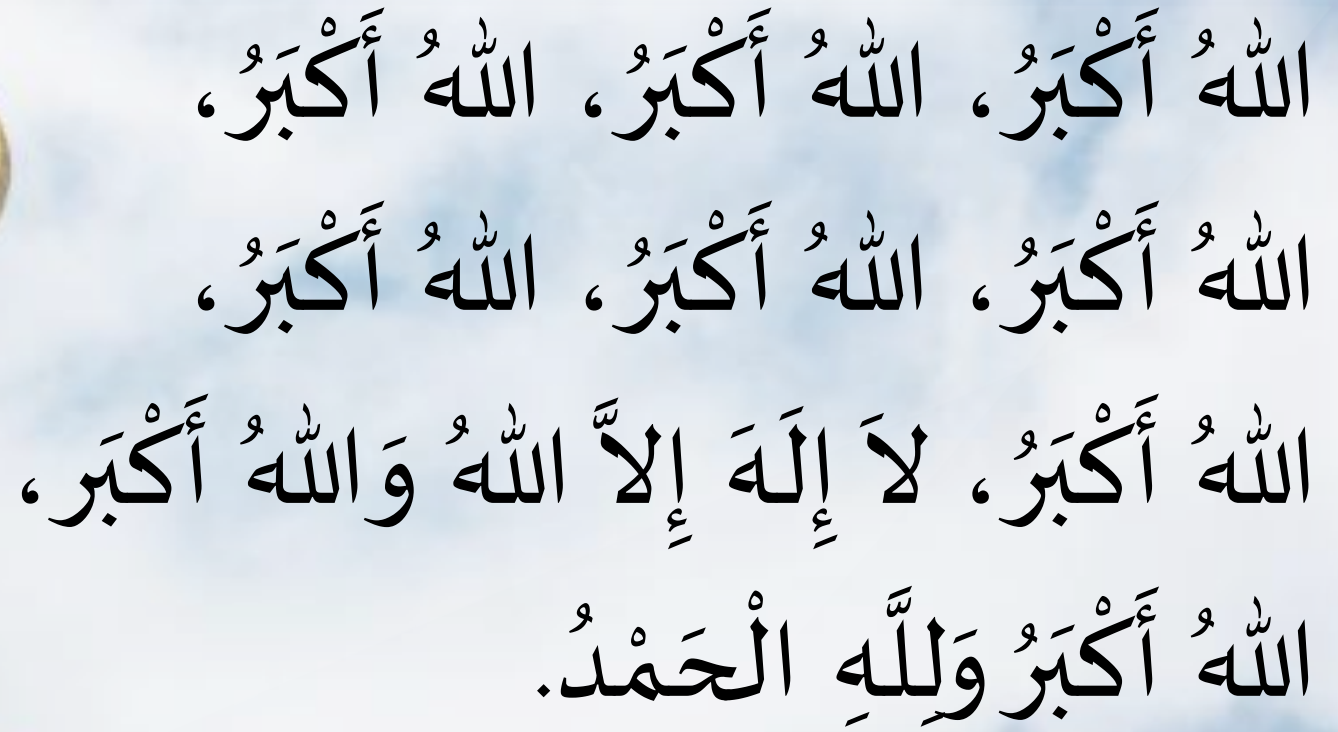 اللهُ أَكْبَرُ، اللهُ أَكْبَرُ، اللهُ أَكْبَرُ،
اللهُ أَكْبَرُ، اللهُ أَكْبَرُ، اللهُ أَكْبَرُ،
اللهُ أَكْبَرُ، لاَ إِلَهَ إِلاَّ اللهُ وَاللهُ أَكْبَر،
اللهُ أَكْبَرُ وَلِلَّهِ الْحَمْدُ.